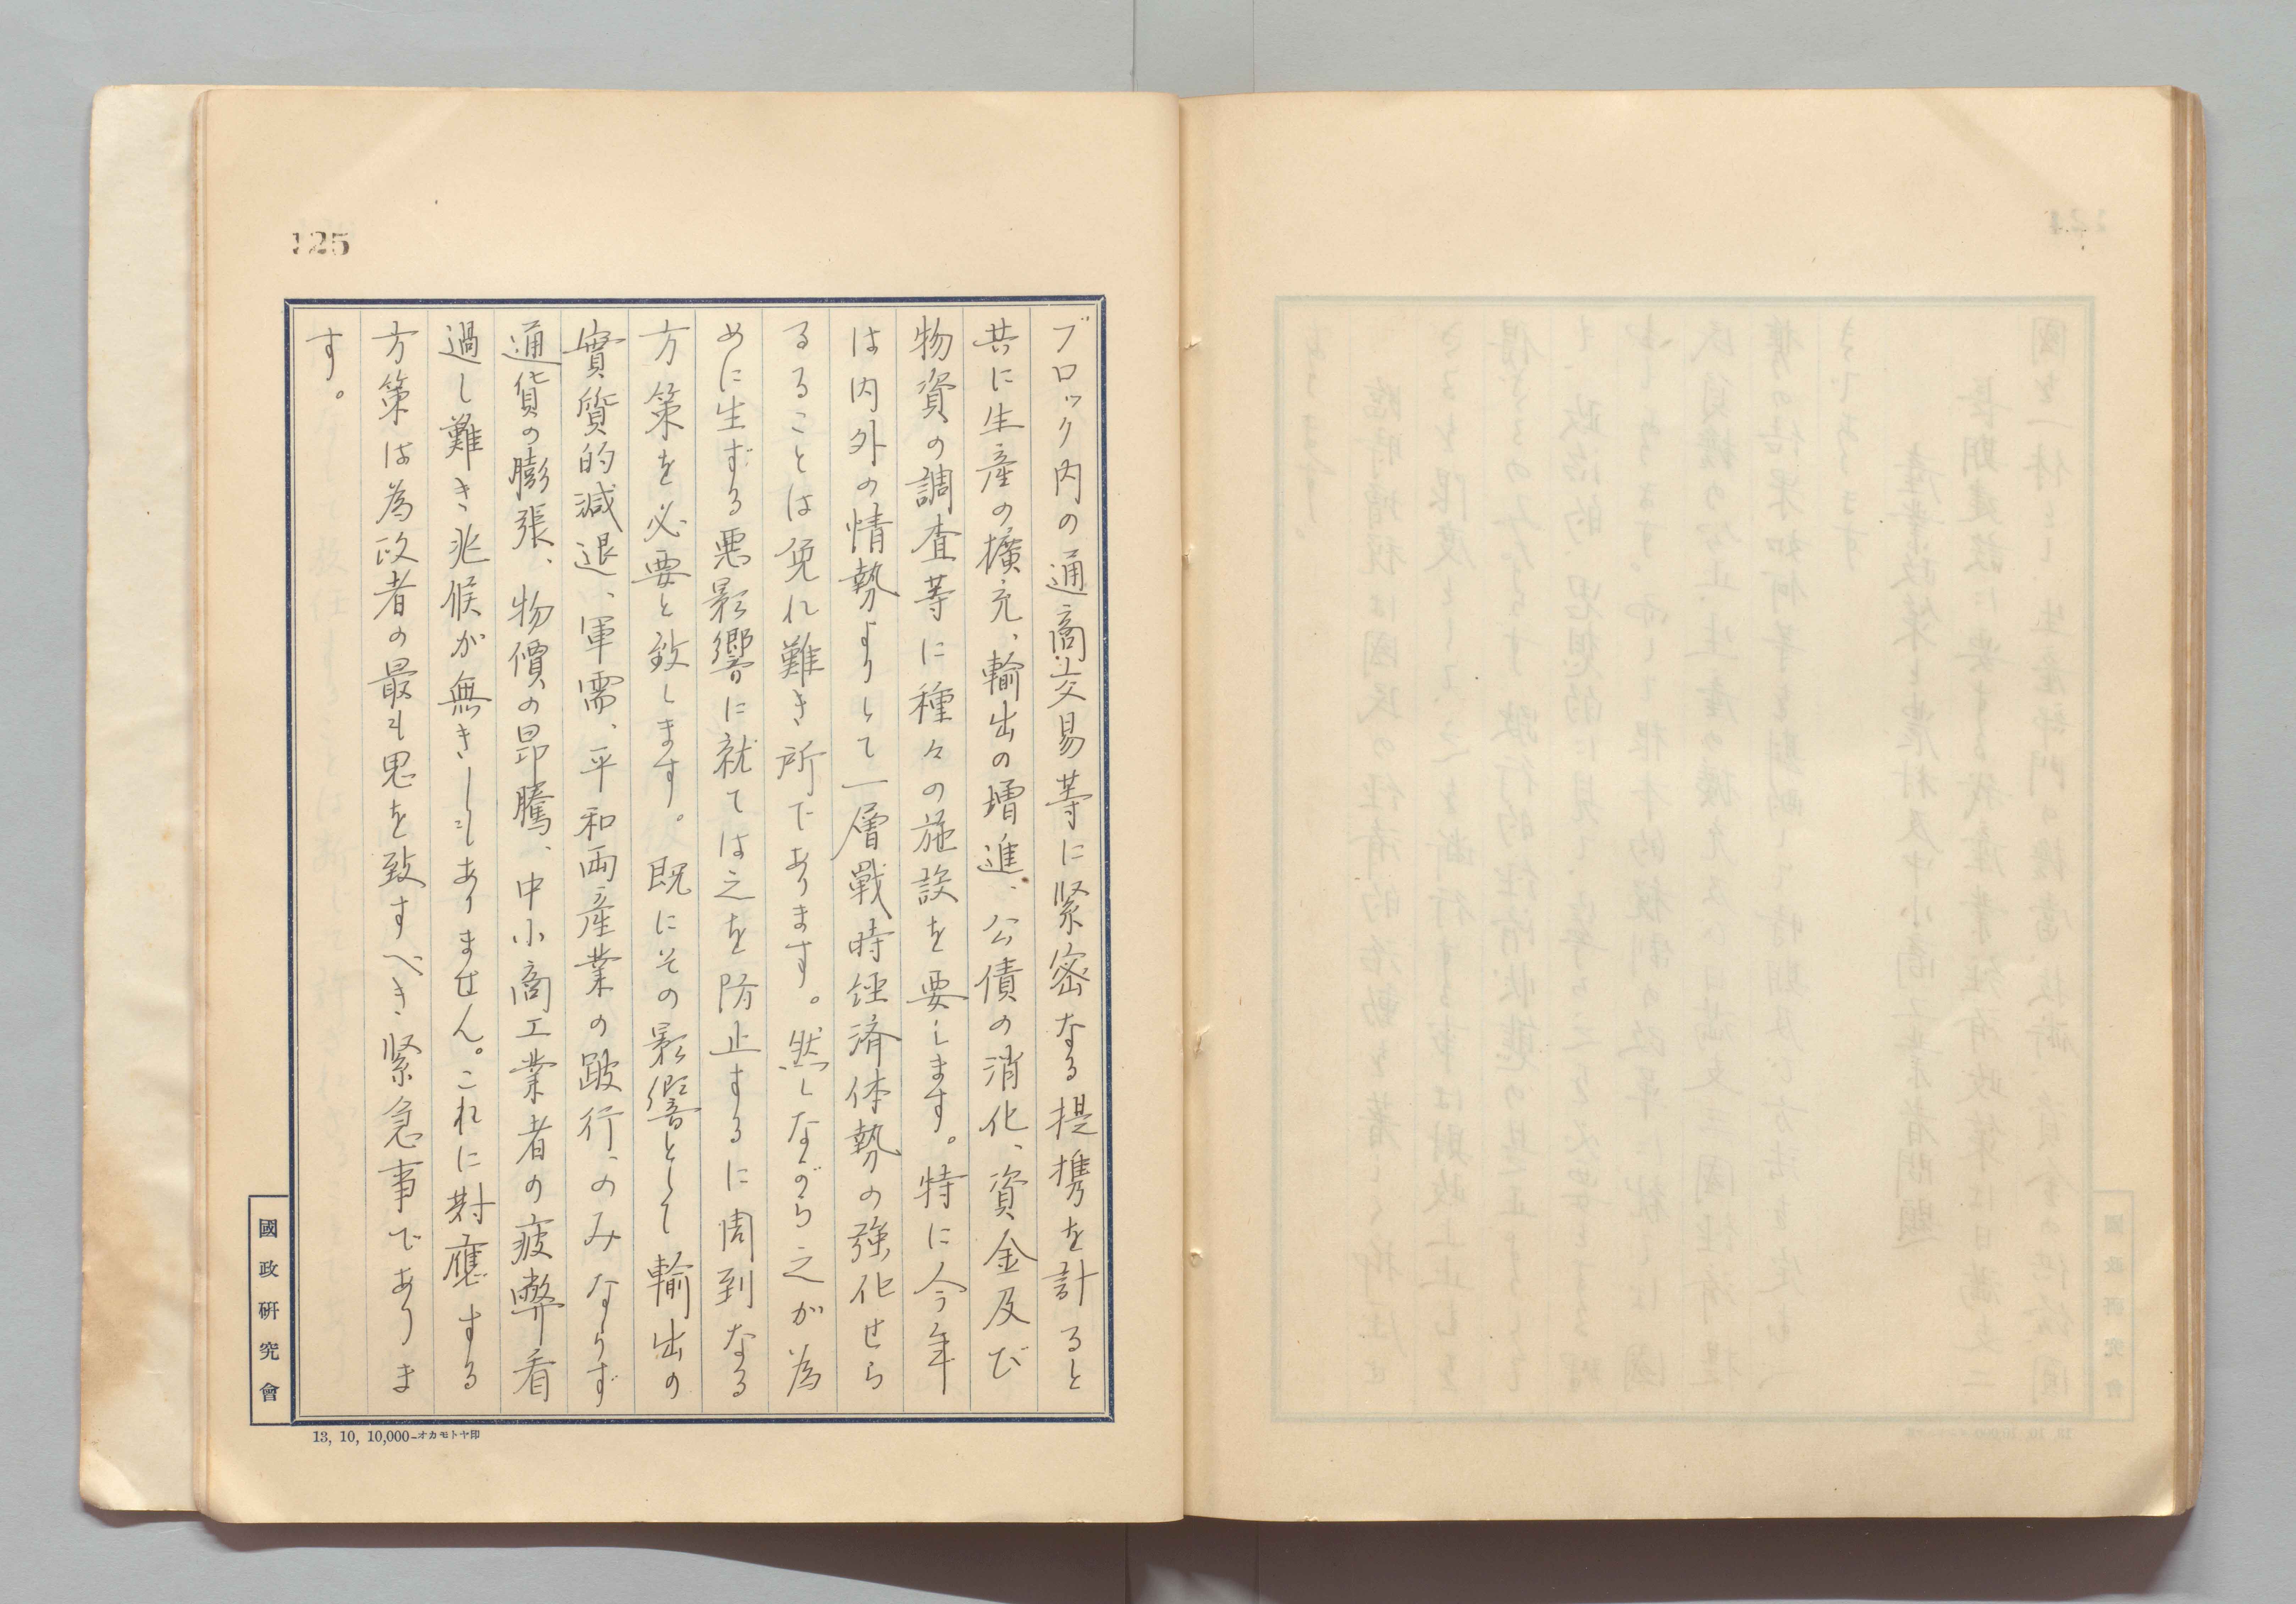 125
ブロック内の通商交易等に緊密なる提携を計ると
共に生産の擴充、輸出の増進、公債の消化、資金及び
物資の調査等に種々の施設を要します。特に今年
は内外の情勢よりして一層戰時経済体勢の強化せら
るることは免れ難き所であります。然しながら之が為
めに生ずる悪影響に就ては之を防止するに周到なる
方策を必要と致します。既にその影響として輸出の
實質的減退、軍需、平和両産業の跛行、のみならず
通貨の膨張、物價の昻騰、中小商工業者の疲弊看
過し難き兆候が無きにしもありません。これに対應する
方策は為政者の最も思を致すべき緊急事でありま
す。
國政研究會
13, 10, 10,000-オカモトヤ印